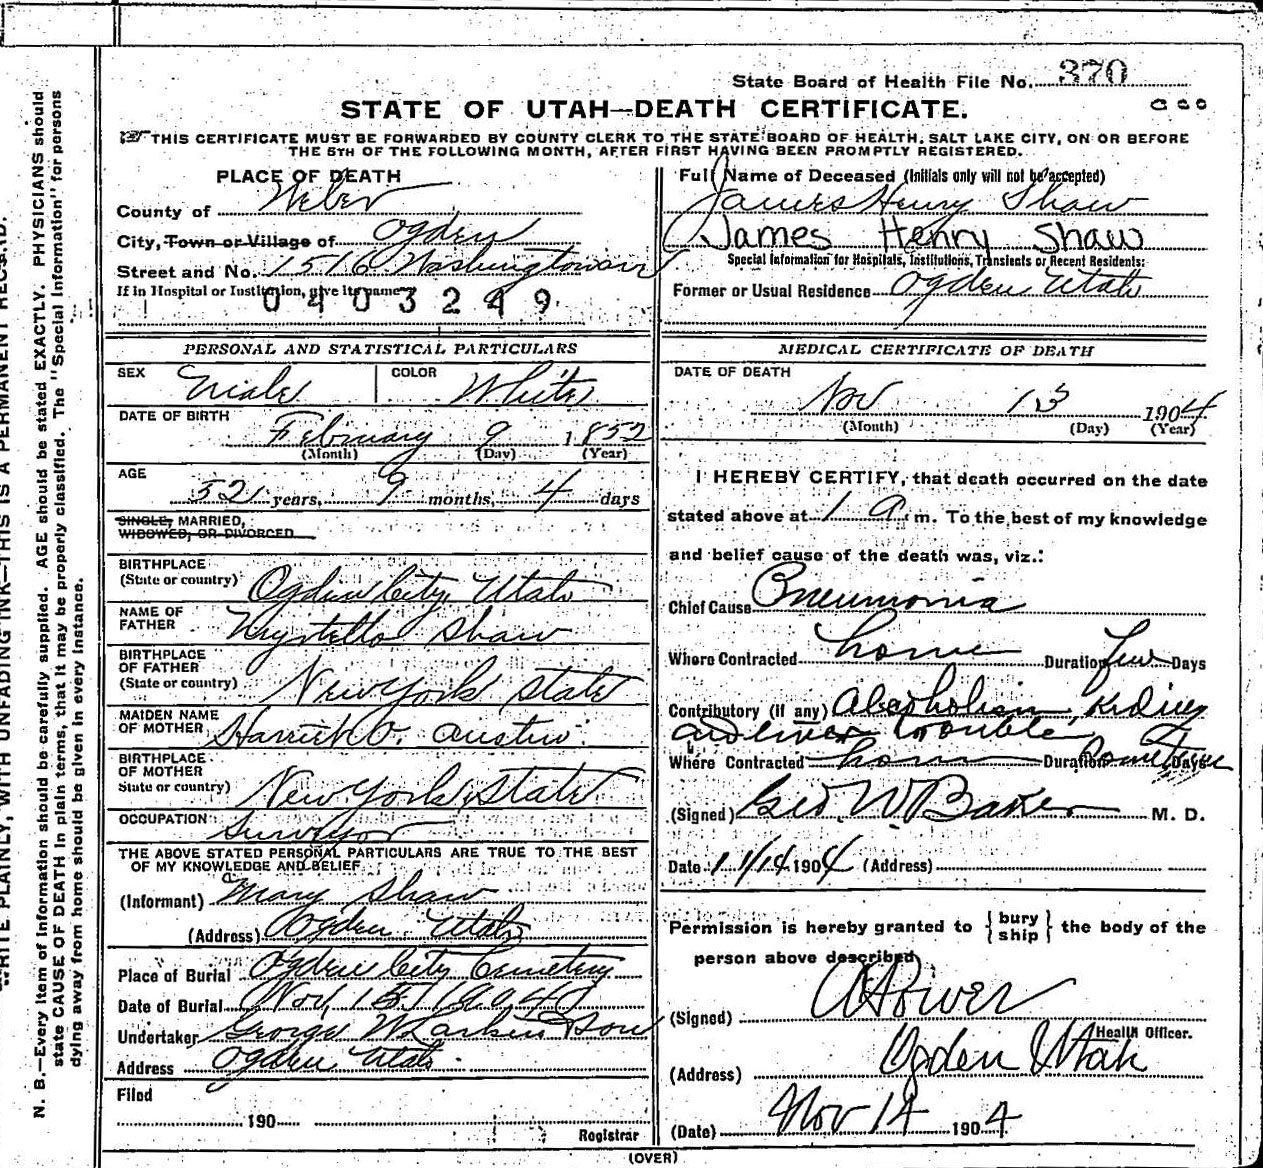 State Board of Health File No. 370
STATE OF UTAH—DEATH CERTIFICATE.
THIS CERTIFICATE MUST BE FORWARDED BY COUNTY CLERK TO THE STATE BOARD OF HEALTH, SALT LAKE CITY, ON OR BEFORE
THE 5TH OF THE FOLLOWING MONTH, AFTER FIRST HAVING BEEN PROMPTLY REGISTERED.
PLACE OF DEATH
County of Weber
City, Town or Village of Ogden
Street and No. 1516 Washington av
If in Hospital or Institution, give its name
0403249
Full Name of Deceased (Initials only will not be accepted)
James Henry Shaw
James Henry Shaw
Special Information for Hospitals, Institutions, Transients or Recent Residents:
Former or Usual Residence Ogden Utah
PERSONAL AND STATISTICAL PARTICULARS
SEX Male COLOR White
DATE OF BIRTH
February 9 1852
(Month) (Day) (Year)
AGE
52 years, 9 months, 4 days
SINGLE, MARRIED,
WIDOWED, OR DIVORCED
BIRTHPLACE
(State or country) Ogden City Utah
NAME OF
FATHER Shaw
BIRTHPLACE
OF FATHER
(State or country) New York State
MAIDEN NAME
OF MOTHER Harriet O. Austin
BIRTHPLACE
OF MOTHER
State or country) New York State
OCCUPATION
Surveyor
THE ABOVE STATED PERSONAL PARTICULARS ARE TRUE TO THE BEST
OF MY KNOWLEDGE AND BELIEF
(Informant) Mary Shaw
(Address) Ogden Utah
Place of Burial Ogden City Cemetery
Date of Burial Nov, 15, 1904
Undertaker George W Larkin & Son
Address Ogden Utah
Filed
190
Registrar
MEDICAL CERTIFICATE OF DEATH
DATE OF DEATH
Nov 13 1904
(Month) (Day) (Year)
I HEREBY CERTIFY, that death occurred on the date
stated above at 1 a. m. To the best of my knowledge
and belief cause of the death was, viz.:
Chief Cause Pneumonia
Where Contracted home Duration few Days
Contributory (if any) Alcoholism, Kidney
and liver trouble
Where Contracted home Duration Sometime Days
(Signed) Geo. W. Baker M. D.
Date 11/14 1904 (Address)
Permission is hereby granted to { bury ship } the body of the
person above described
(Signed) Power
Health Officer.
(Address) Ogden Utah
(Date) Nov 14 1904
(OVER)
WRITE PLAINLY, WITH UNFADING INK—THIS IS A PERMANENT RECORD.
N. B.—Every item of information should be carefully supplied. AGE should be stated EXACTLY. PHYSICIANS should
state CAUSE OF DEATH in plain terms, that it may be properly classified. The "Special Information" for persons
dying away from home should be given in every instance.